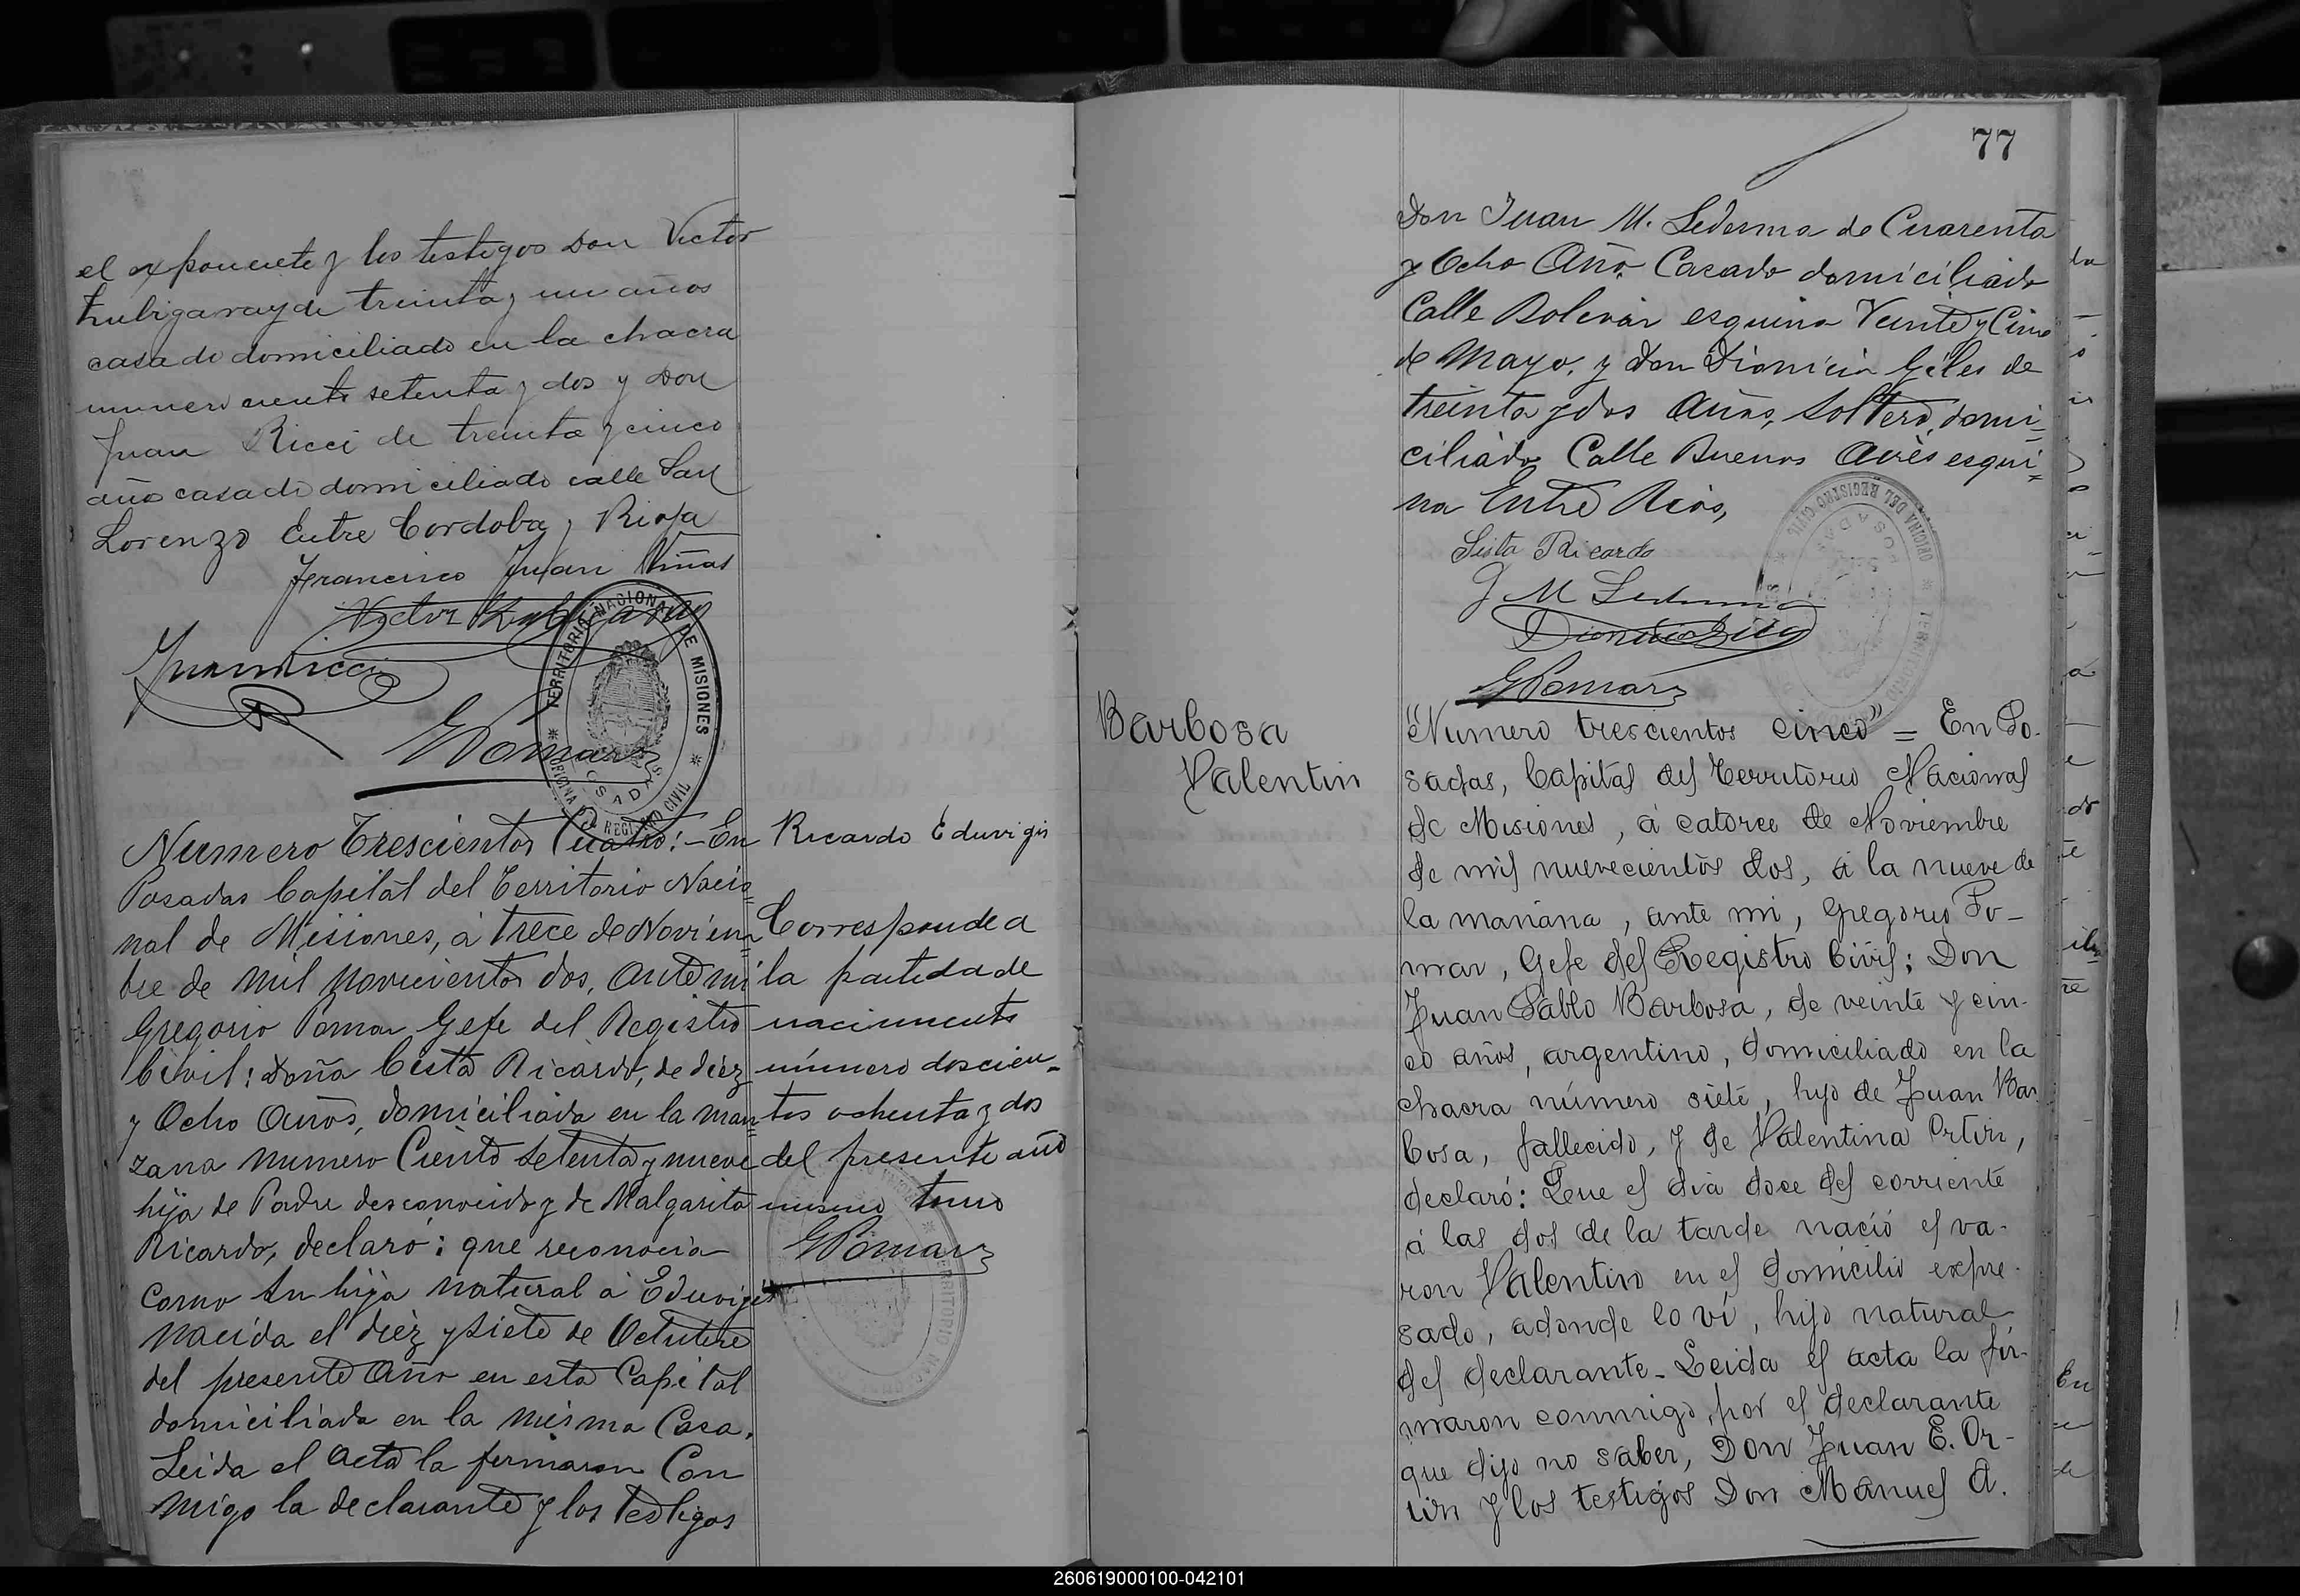 el exponente y los testigos Don Victor
Zubigaray de treinta y un años
casado domiciliado en la chacra
numero ciento setenta y dos y Don
Juan Ricci de treinta y cinco
años casado domiciliado calle San
Lorenzo Entre Cordoba y Rioja
Francisco Juan Viñas
Juan Ricci
GPomar
TERRITORIO NACIONAL DE MISIONES
OFICINA DEL REGISTRO CIVIL
POSADAS
Numero Trescientos Cuatro:- En
Posadas Capital del Territorio Nacio=
nal de Misiones, á trece de Noviem=
bre de mil novecientos dos, ante mi
Gregorio Pomar Gefe del Registro
Civil: doña Cista Ricardo, de diez
y Ocho años, domiciliada en la man=
zana numero Ciento setenta y nueve
hija de Padre desconocido y de Malgarita
Ricardo, declaró: que reconocia
como su hija natural á Eduviges
nacida el diez y siete de Octubre
del presente Año en esta Capital
domiciliada en la misma Casa.
Leida el Acta la firmaron Con
migo la declarante y los testigos
Ricardo Eduvigis
Corresponde a
la partida de
nacimiento
número doscien-
tos ochenta y dos
del presente año
mismo tomo
GPomar
77
Don Juan M. Ledesma de Cuarenta
y Ocho Año Casado domiciliado
Calle Bolivar esquina Veinte y Cinco
de Mayo, y Don Dionicio Giles de
treinta y dos Años, Soltero, domi=
ciliado Calle Buenos Aires esqui=
na Entre Rios,
Sista Ricardo
J M Ledesma
GPomar
OFICINA DEL REGISTRO CIVIL
POSADAS
Barbosa
Valentin
"Numero trescientos cinco" = En Po-
sadas, Capital del Territorio Nacional
de Misiones, á catorce de Noviembre
de mil nuevecientos dos, á la nueve de
la mañana, ante mi, Gregorio Po-
mar, Gefe del Registro Civil; Don
Juan Pablo Barbosa, de veinte y cin-
co años, argentino, domiciliado en la
chacra número siete, hijo de Juan Bar
bosa, fallecido, y de Valentina Ortin,
declaró: Que el dia doce del corriente
á las dos de la tarde nació el va-
ron Valentin en el domicilio expre-
sado, adonde lo ví, hijo natural
del declarante- Leida el acta la fir-
maron conmigo, por el declarante
que dijo no saber, Don Juan E. Or-
tin y los testigos Don Manuel A.
260619000100-042101